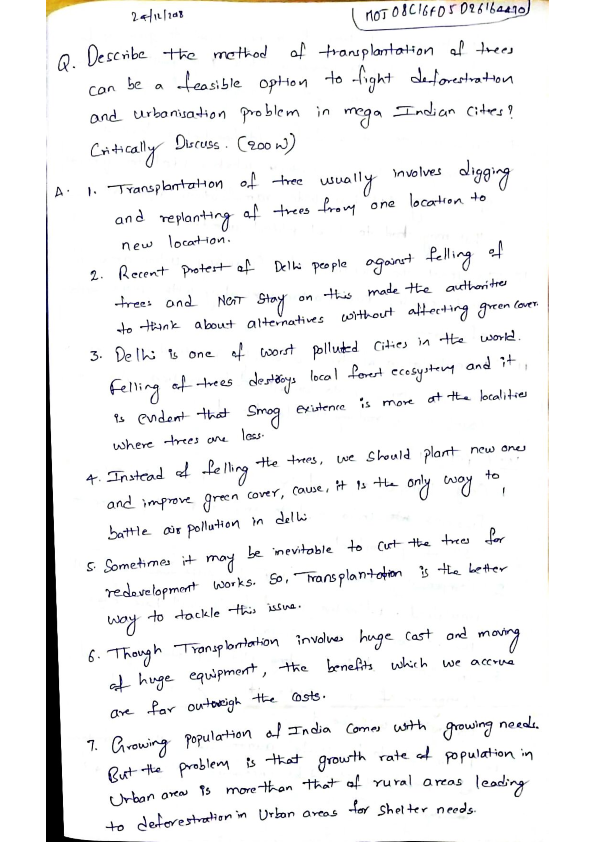 24/12/208
MOJ08C16F05D2616
Q. Describe the method of transplantation of trees
can be a feasible option to fight deforestration
and urbanisation problem in mega Indian cities?
Critically Discuss. (200 W)
A. 1. Transplantation of tree usually involves digging
and replanting of trees from one location to
new location.
2. Recent protest of Delhi people against felling of
trees and NGT stay on this made the authorities
to think about alternatives without affecting green cover.
3. Delhi is one of worst polluted cities in the world.
Felling of trees destroys local forest ecosystem and it
is evident that smog existence is more at the localities
where trees are less.
4. Instead of felling the trees, we should plant new ones
and improve green cover, cause, it is the only way to
battle air pollution in delhi
5. Sometimes it may be inevitable to cut the trees for
redevelopment works. So, Transplantation is the better
way to tackle this issue.
6. Though Transplantation involves huge cost and moving
of huge equipment, the benefits which we accrue
are far outweigh the costs.
7. Growing population of India comes with growing needs.
But the problem is that growth rate of population in
Urban area is more than that of rural areas leading
to deforestration in Urban areas for shelter needs.